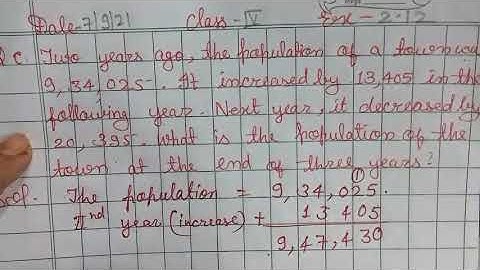 Date-7/9/21 Class-V Ex-2.12
Q c. Two years ago, the population of a town was
9,34,025. It increased by 13,405 in the
following year. Next year, it decreased by
20,395. What is the population of the
town at the end of three years?
Sol. The population = 9,34,025.
IInd year (increase) + 13 405
9,47,430